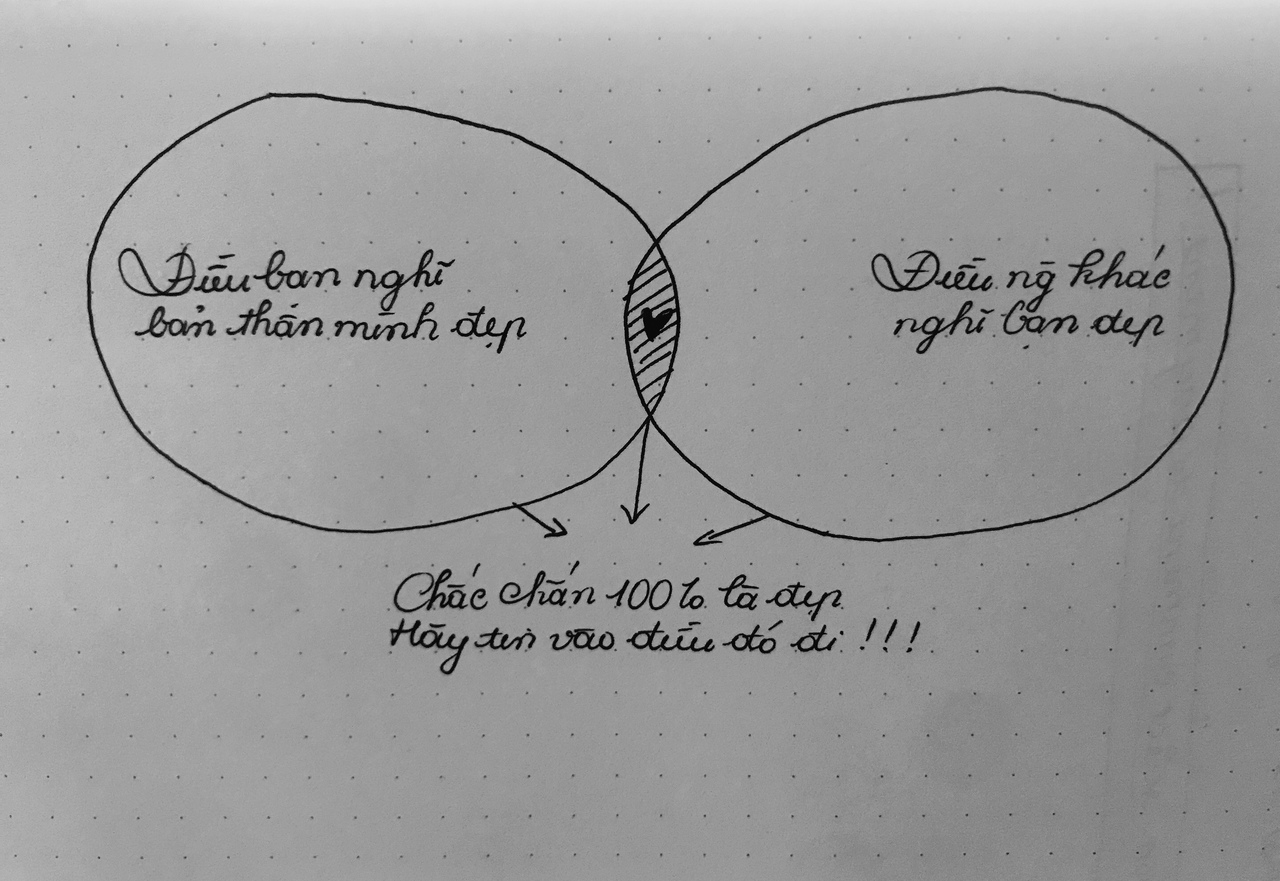 Điều bạn nghĩ
bản thân mình đẹp
Điều ng̀ khác
nghĩ bạn đẹp
Chắc chắn 100% là đẹp
Hãy tin vào điều đó đi !!!